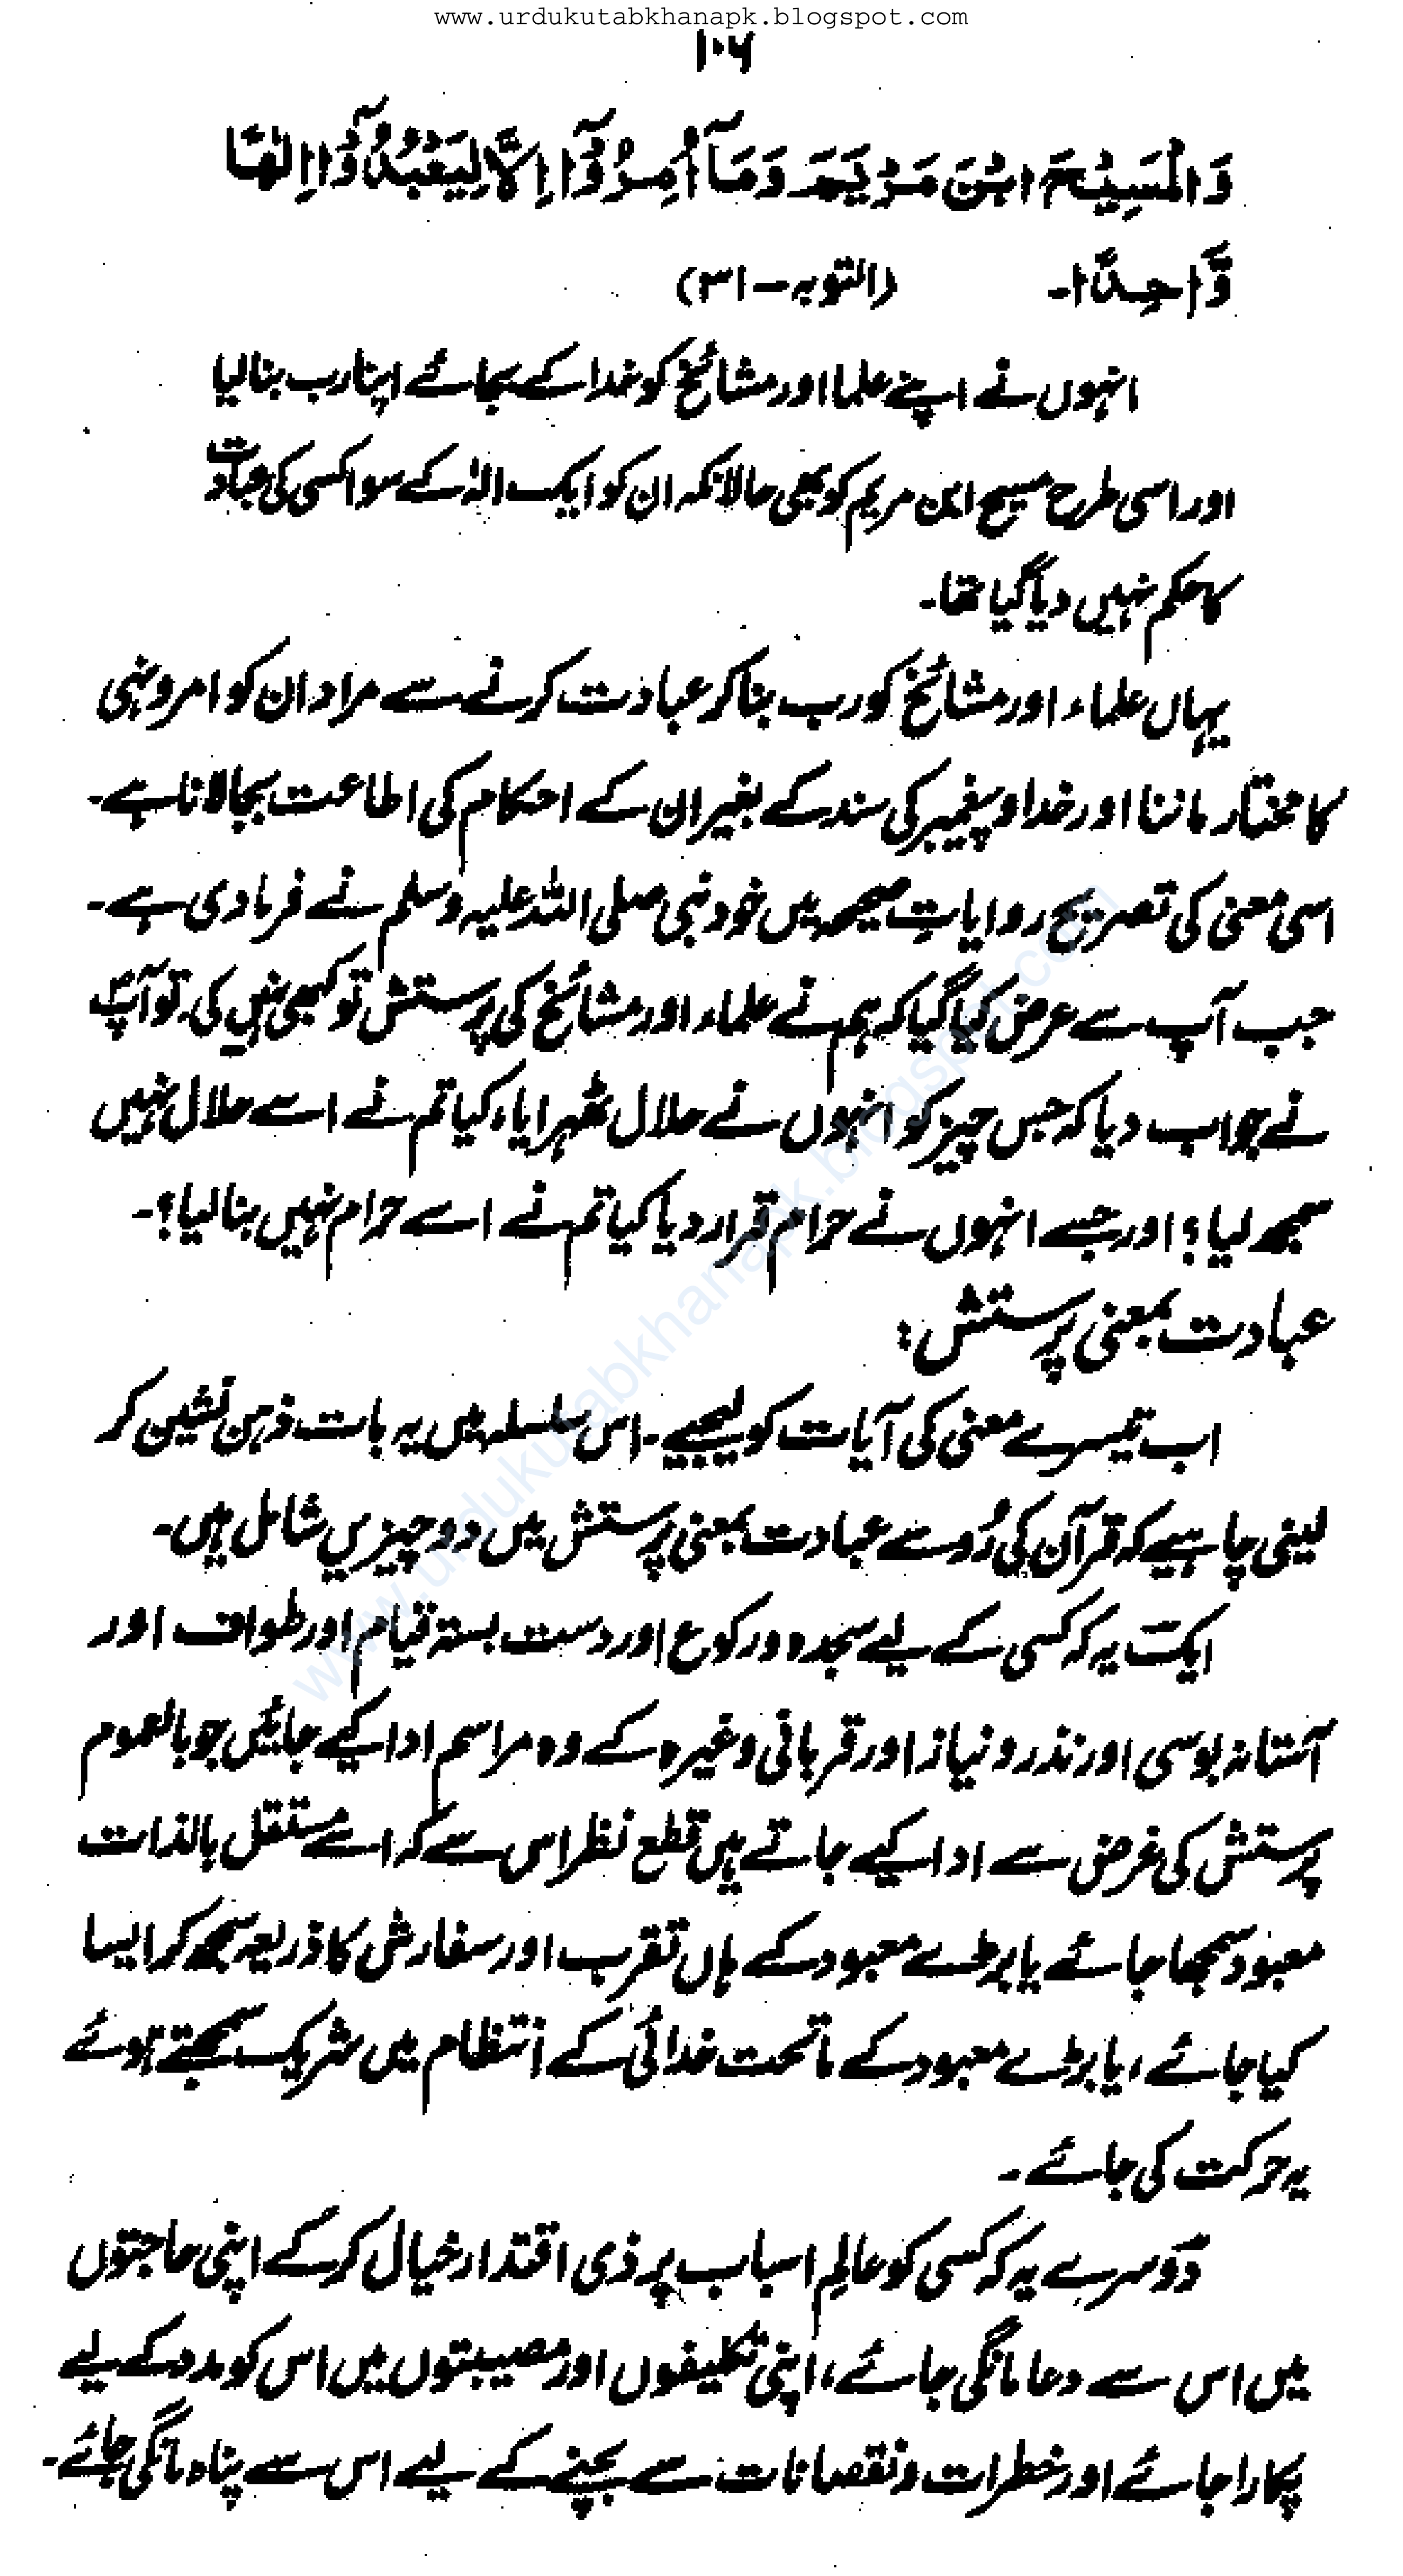 www.urdukutabkhanapk.blogspot.com
۱۰۶
وَالْمَسِيْحَ ابْنَ مَرْيَمَ وَمَآ اُمِرُوْٓا اِلَّا لِيَعْبُدُوْٓا اِلٰهًا
وَّاحِدًا۔ (التوبہ-۳۱)
انہوں نے اپنے علما اور مشائخ کو خدا کے بجائے اپنا رب بنا لیا
اور اسی طرح مسیح ابن مریم کو بھی حالانکہ ان کو ایک الٰہ کے سوا کسی کی عبادت
کا حکم نہیں دیا گیا تھا۔
یہاں علماء اور مشائخ کو رب بنا کر عبادت کرنے سے مراد ان کو امر و نہی
کا مختار ماننا اور خدا و پیغمبر کی سند کے بغیر ان کے احکام کی اطاعت بجا لانا ہے۔
اسی معنی کی تصریح روایاتِ صحیحہ میں خود نبی صلی اللہ علیہ وسلم نے فرما دی ہے۔
جب آپ سے عرض کیا گیا کہ ہم نے علماء اور مشائخ کی پرستش تو کبھی نہیں کی۔ تو آپؐ
نے جواب دیا کہ جس چیز کو انہوں نے حلال ٹھہرایا، کیا تم نے اسے حلال نہیں
سمجھ لیا؟ اور جسے انہوں نے حرام قرار دیا کیا تم نے اسے حرام نہیں بنا لیا؟۔
عبادت بمعنی پرستش:
اب تیسرے معنی کی آیات کو لیجیے۔ اس سلسلہ میں یہ بات ذہن نشین کر
لینی چاہیے کہ قرآن کی رُو سے عبادت بمعنی پرستش میں دو چیزیں شامل ہیں۔
ایک یہ کہ کسی کے لیے سجدہ و رکوع اور دست بستہ قیام اور طواف اور
آستانہ بوسی اور نذر و نیاز اور قربانی وغیرہ کے وہ مراسم ادا کیے جائیں جو بالعموم
پرستش کی غرض سے ادا کیے جاتے ہیں قطع نظر اس سے کہ اسے مستقل بالذات
معبود سمجھا جائے یا بڑے معبود کے ہاں تقرب اور سفارش کا ذریعہ سمجھ کر ایسا
کیا جائے، یا بڑے معبود کے ماتحت خدائی کے انتظام میں شریک سمجھتے ہوئے
یہ حرکت کی جائے۔
دوسرے یہ کہ کسی کو عالمِ اسباب پر ذی اقتدار خیال کر کے اپنی حاجتوں
میں اس سے دعا مانگی جائے، اپنی تکلیفوں اور مصیبتوں میں اس کو مدد کے لیے
پکارا جائے اور خطرات و نقصانات سے بچنے کے لیے اس سے پناہ مانگی جائے۔
www.urdukutabkhanapk.blogspot.com